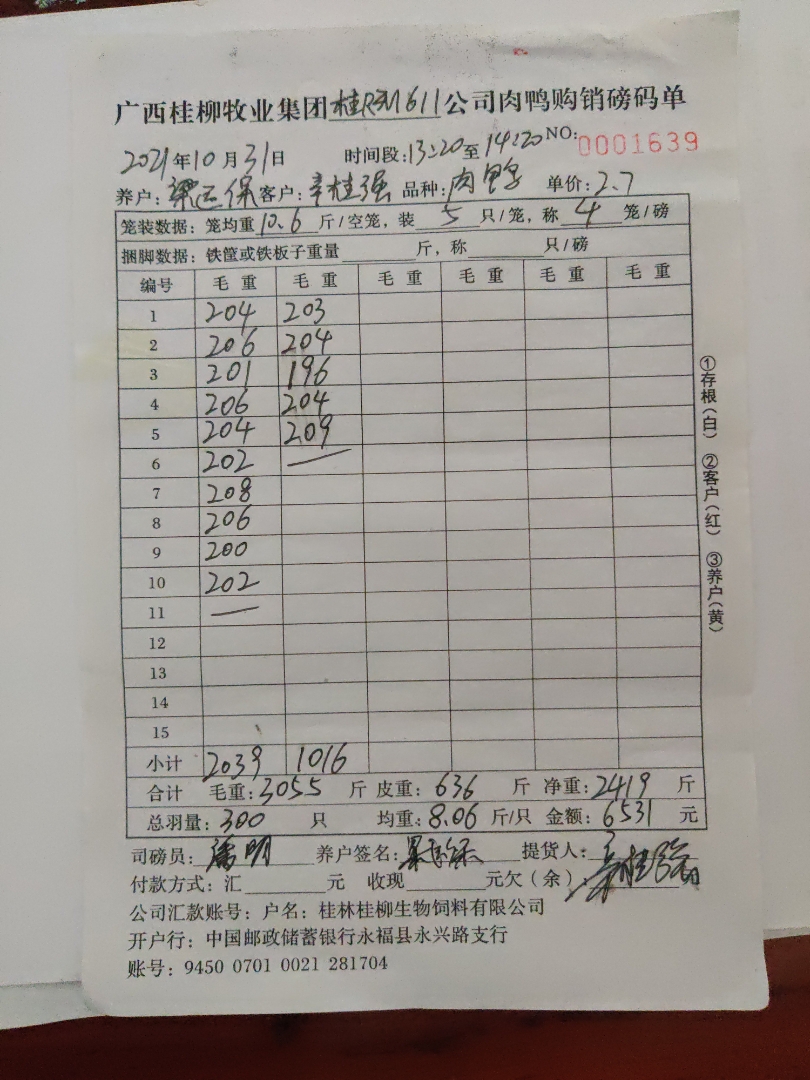 广西桂柳牧业集团桂 611公司肉鸭购销磅码单
2021年10月31日 时间段:13:20至14:20 NO: 0001639
养户: 客户:辛桂强 品种:肉鸭 单价:2.7
笼装数据:笼均重10.6斤/空笼,装5只/笼,称4笼/磅
捆脚数据:铁筐或铁板子重量 斤,称 只/磅
编号 毛重 毛重 毛重 毛重 毛重 毛重
1 204 203
2 206 204
3 201 196
4 206 204
5 204 209
6 202 —
7 208
8 206
9 200
10 202
11 —
12
13
14
15
小计 2039 1016
合计 毛重:3055 斤 皮重:636 斤 净重:2419 斤
总羽量:300 只 均重:8.06 斤/只 金额:6531 元
司磅员: 养户签名: 提货人:
付款方式:汇 元 收现 元欠(余)
公司汇款账号:户名:桂林桂柳生物饲料有限公司
开户行:中国邮政储蓄银行永福县永兴路支行
账号:9450 0701 0021 281704
①存根(白) ②客户(红) ③养户(黄)